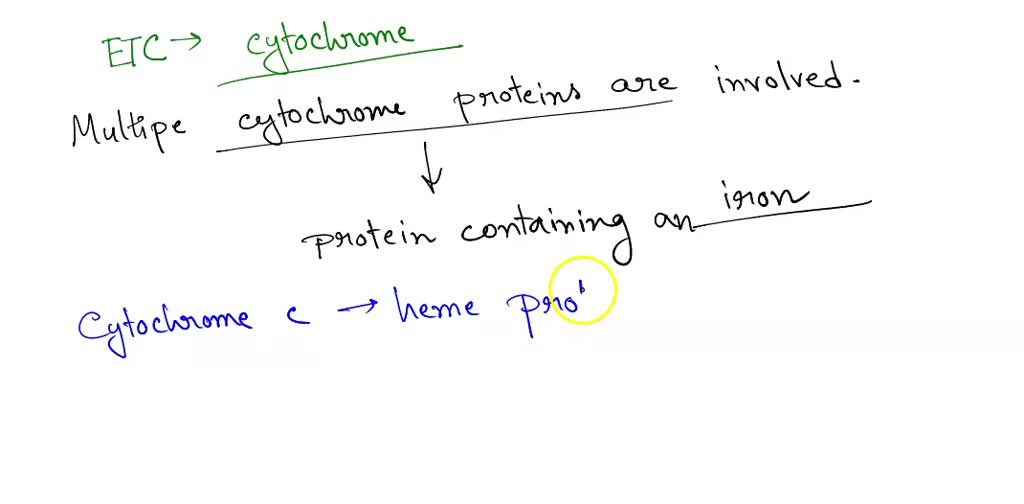 ETC → cytochrome
Multipe cytochrome proteins are involved.
↓
protein containing an iron
Cytochrome c → heme pro